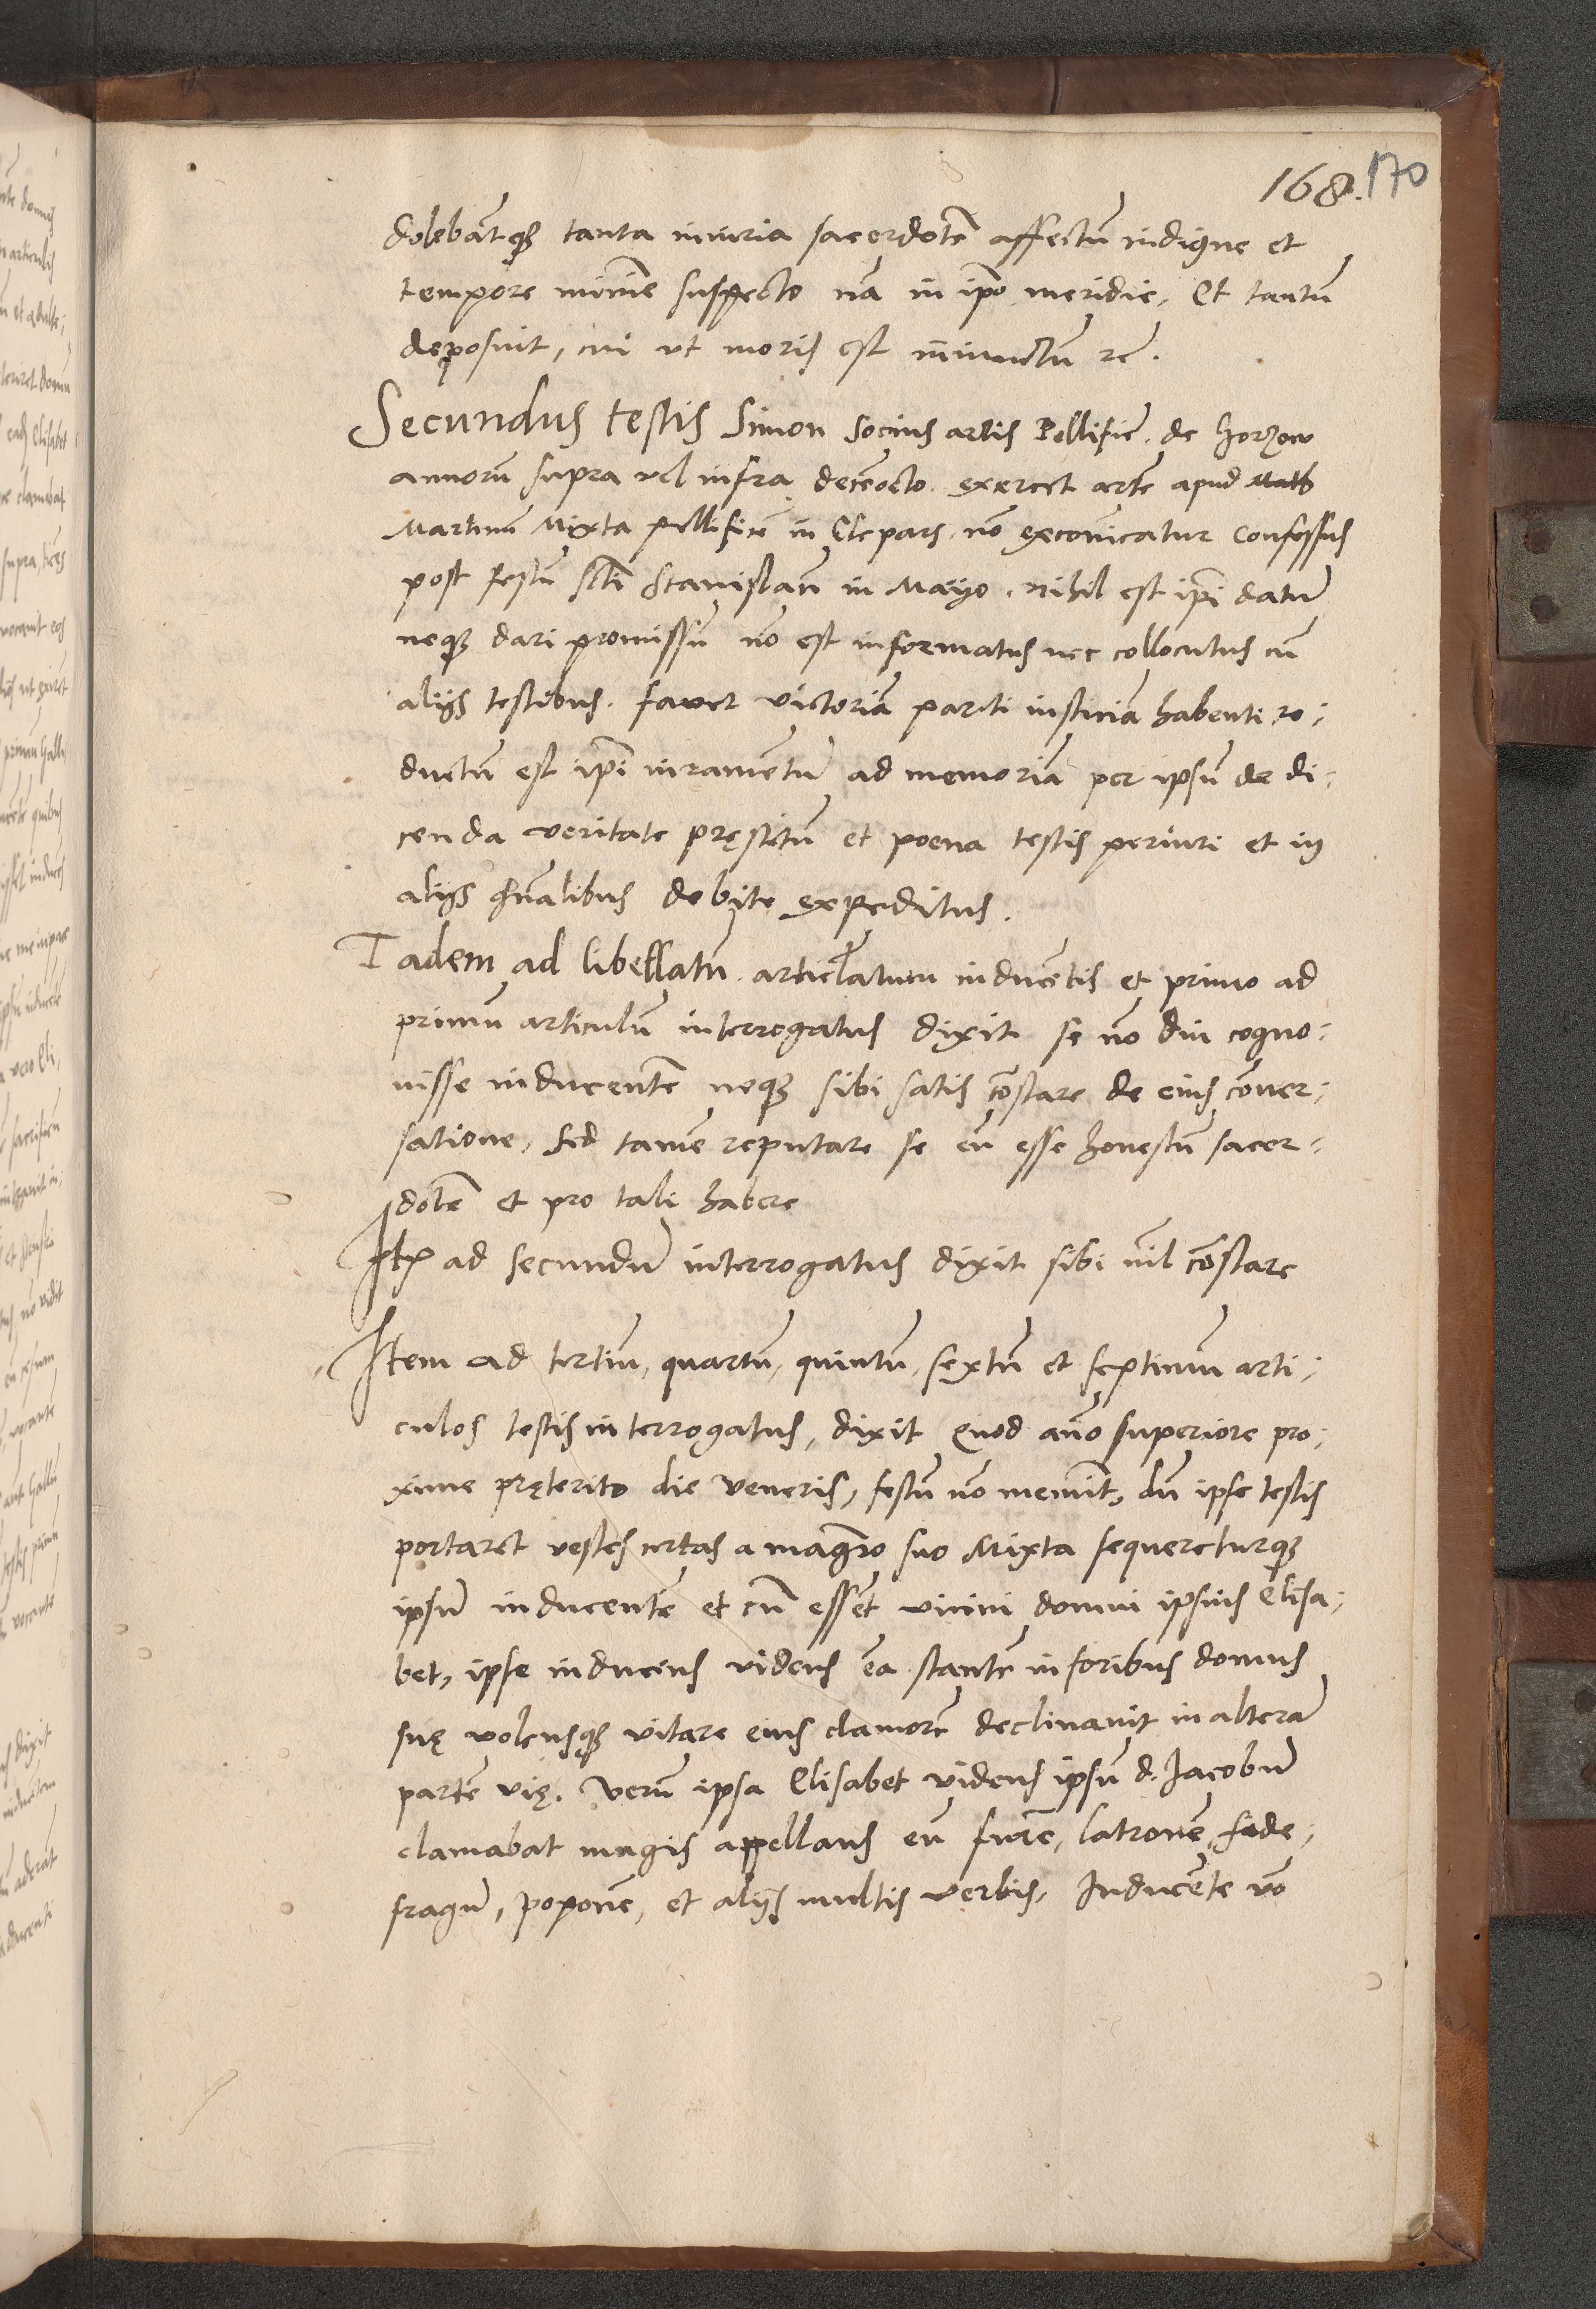 168. 170
dolebātq₃ tanta iniuria sacerdotē affectū indigne et
tempore minīe suspecto nā in ip̄o meridie, Et tantū
deposuit, cui ut moris est iniunctū rc̄.
Secundus testis Simon socius artis Pellificū. de Gorzow
annorū supra vel infra decēocto. exercet artē apud
Martinū Mixta pellificē in Clepars. nō excōīcatur confessus
post festū sc̄ti Stanislaū in Mayo. nihil est ip̄i datū
neq₃ dari promissū nō est informatus nec collocutus cū
alijs testibus. favet victoriā parti iusticiā habenti re,
ductū est ip̄i iuramentū ad memoriā per ipsū de di,
cenda veritate pręstitū et poena testis periuri et in
alijs gn̄alibus debite expeditus.
Tādem ad libellatū. articl̄atum inducētis et primo ad
primū articulū interrogatus dixit se nō diu cogno,
uisse inducentē neq₃ sibi satis c̄ostare de eius cōuer,
satione, sed tamē reputare se eū esse honestū sacer,
dotē et pro tali habere
Itē ad secundū interrogatus dixit sibi nīl cōstare
Item ad tertiū, quartū, quintū, sextū et septimum arti,
culos testis interrogatus, dixit Quod ān̄o superiore pro,
xime pręterito die Veneris, festū nō meminit, dū ipse testis
portaret vestes certas a magr̄o suo Mixta sequereturq₃
ipsū inducentē et cū essēt vicini domui ipsius Elisa,
bet, ipse inducēns videns eā stantē in foribus domus
suę volensq₃ vitare eius clamorē declinauit in alterā
partē vię. Verū ipsa Elisabet videns ipsū d. Jacobū
clamabat magis appellans eū furē, latronē, fide,
fragū, poponē, et alijs multis verbis, Inducēte vō